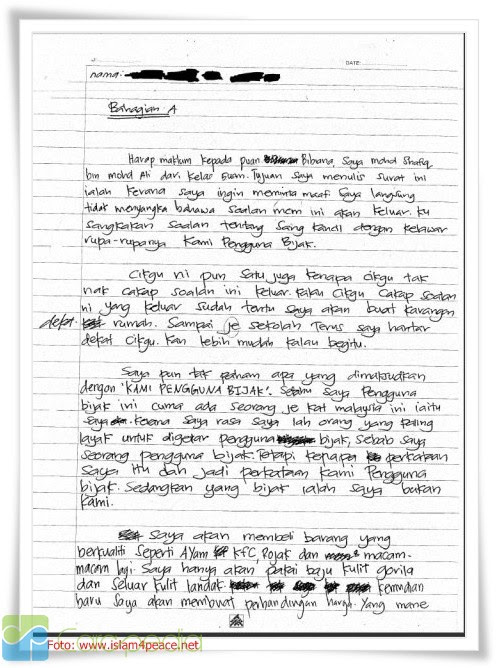 DATE:
nama:
Bahagian A
Harap maklum kepada puan Bibiana, saya mohd Shafiq
bin mohd Ali dari kelas 5uam. Tujuan saya menulis surat ini
ialah kerana saya ingin meminta maaf. Saya langsung
tidak menyangka bahawa soalan mcm ini akan keluar. ku
sangkakan soalan tentang sang kancil dengan kelawar
rupa-rupanya Kami Pengguna Bijak.
Cikgu ni pun satu juga kenapa cikgu tak
nak cakap soalan ini keluar. Kalau cikgu cakap soalan
ni yang keluar sudah tentu saya akan buat karangan
dekat rumah. Sampai je sekolah terus saya hantar
dekat cikgu. Kan lebih mudah kalau begitu.
Saya pun tak paham apa yang dimaksudkan
dengan 'KAMI PENGGUNA BIJAK'. Setahu saya Pengguna
bijak ini cuma ada seorang je kat malaysia ini iaitu
saya. Kerana saya rasa saya lah orang yang paling
layak untuk digelar pengguna bijak, sebab saya
seorang pengguna bijak. Tetapi kenapa perkataan
saya itu dah jadi perkataan kami Pengguna
bijak. Sedangkan yang bijak ialah saya bukan
kami.
Saya akan membeli barang yang
berkualiti seperti Ayam KFC, Rojak dan macam-
macam lagi. Saya hanya akan pakai baju kulit gorila
dan seluar kulit landak kemudian
baru saya akan membuat perbandingan harga. Yang mane
Foto: www.islam4peace.net